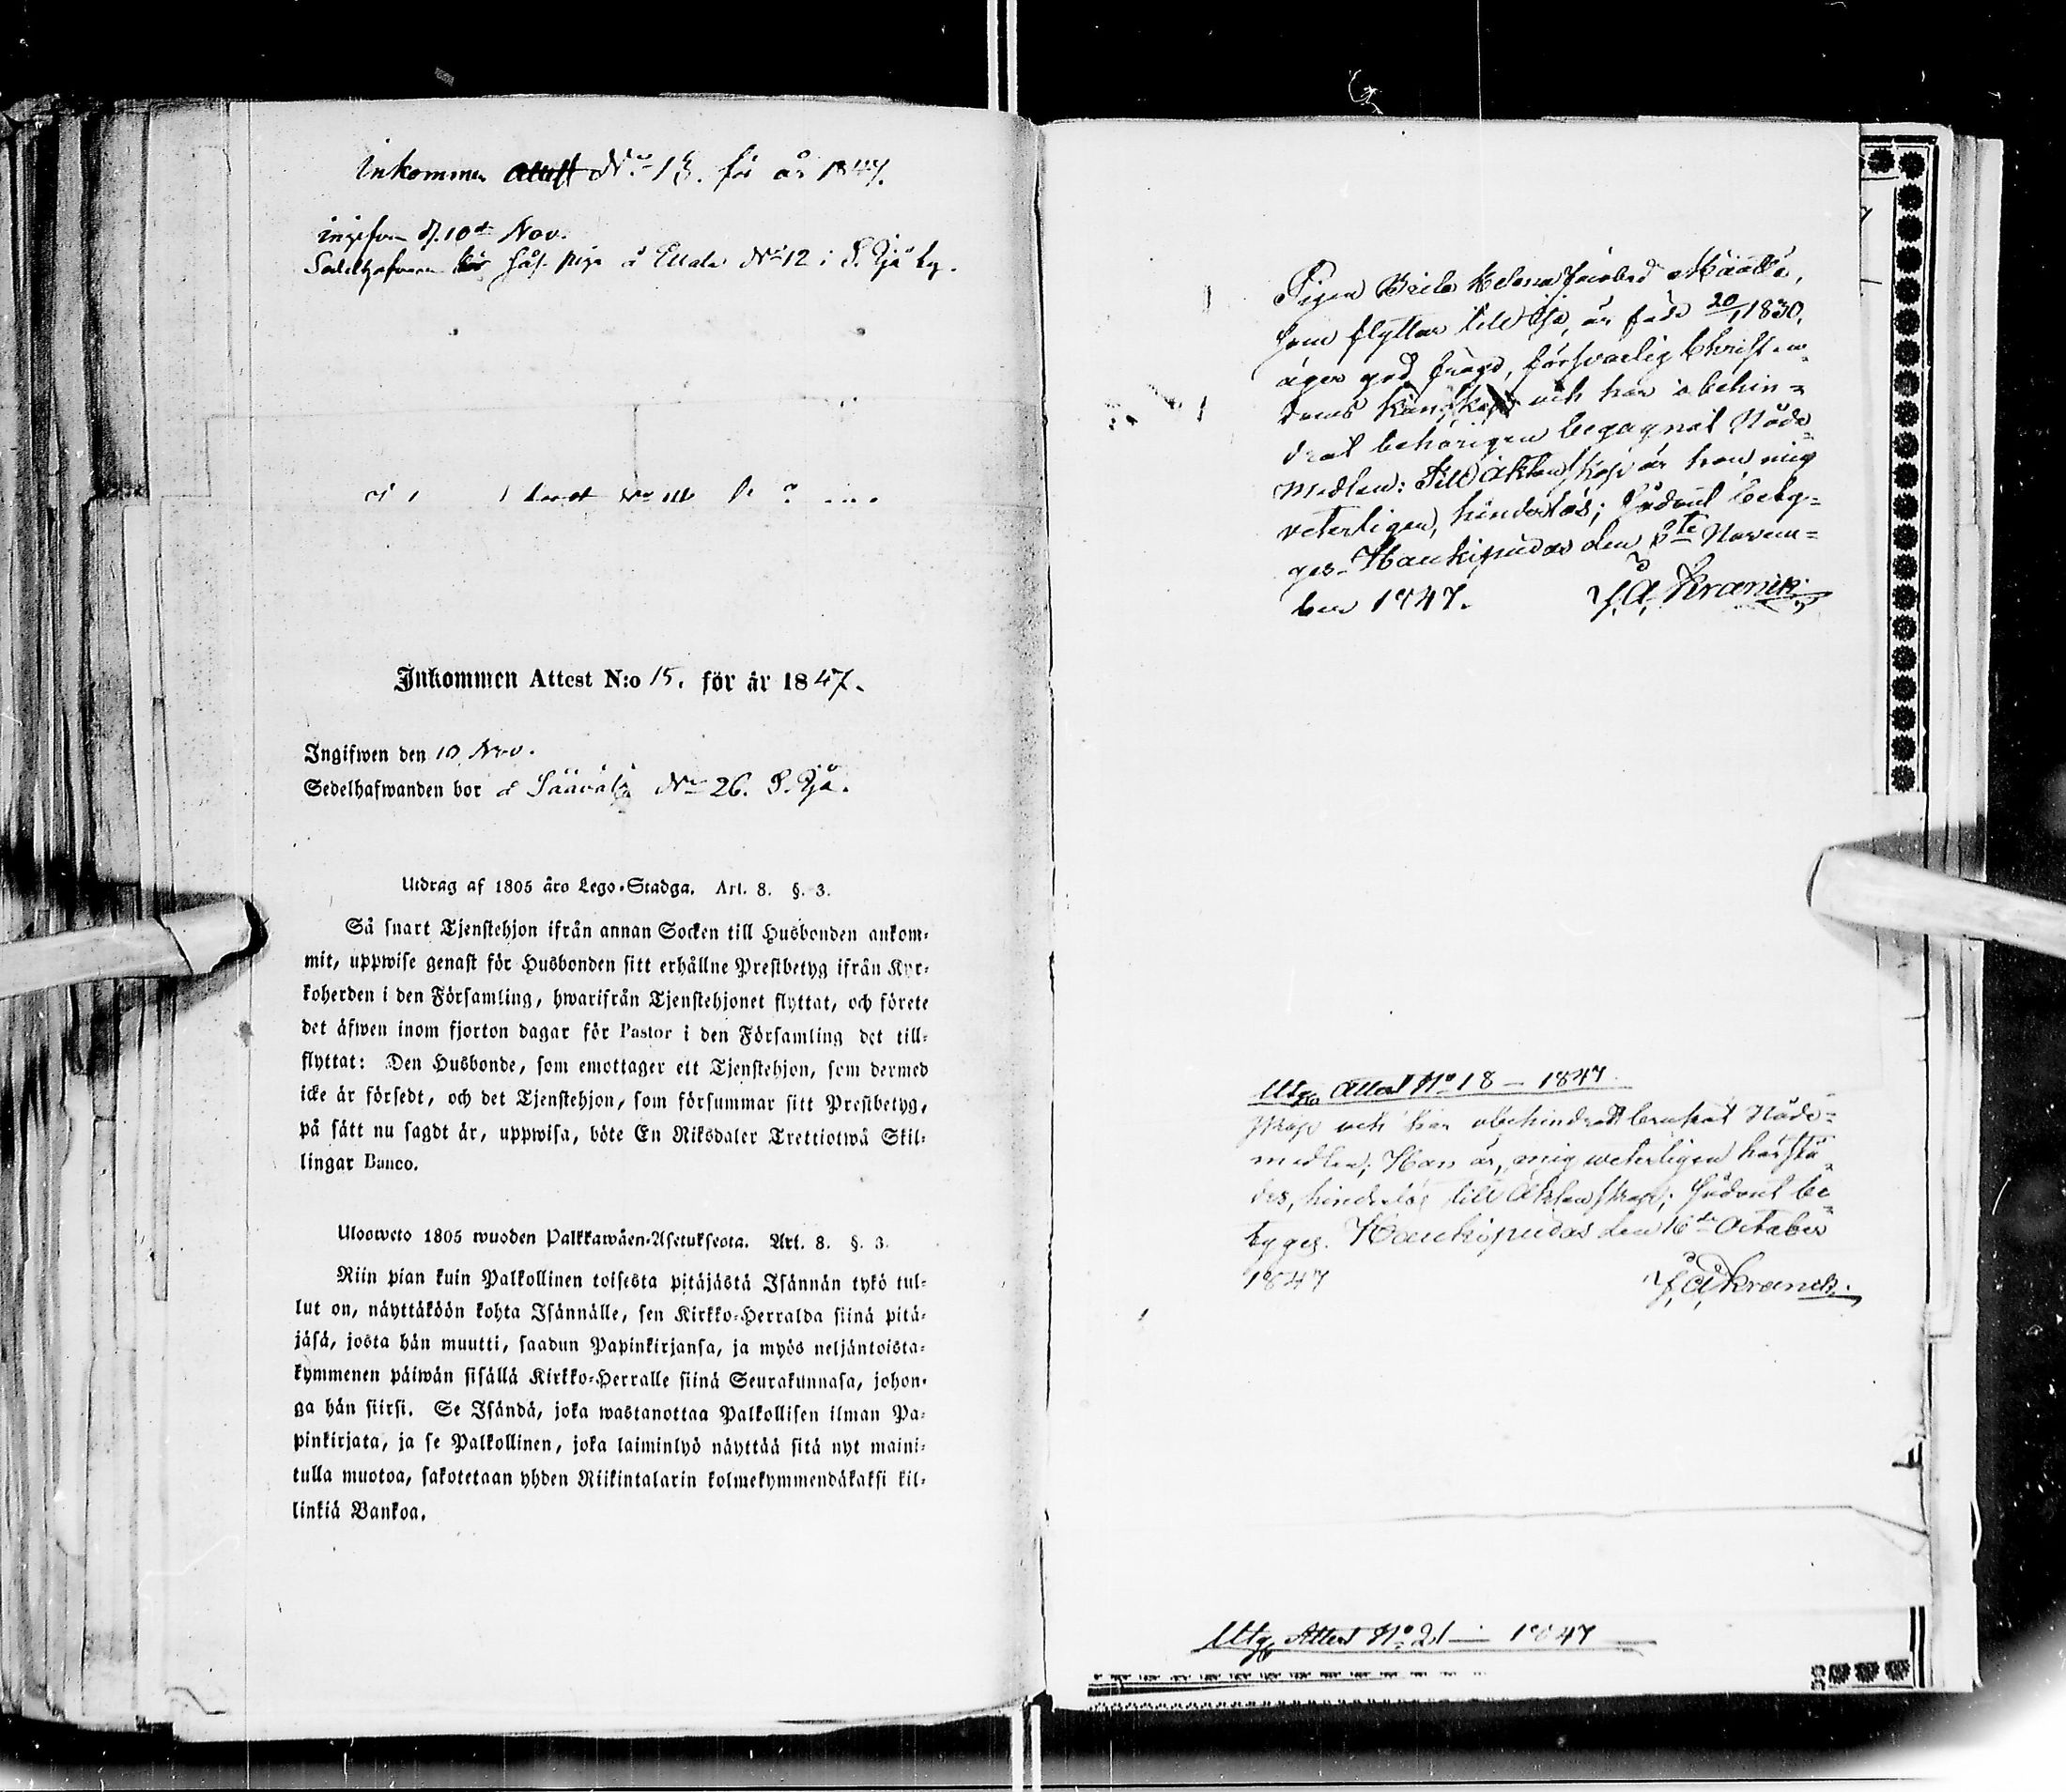 Inkommen Attest No 13. för år 1847.
ingifven d. 10de Nov.
Sedelhafvaren bör såś. piga å Ellala No 12 i S. Ijå by.
Inkommen Attest N:o 15. för år 1847.
Ingifwen den 10 Nov.
Sedelhafwanden bor å Säävälä No 26. S. Ijå.
Utdrag af 1805 åro Lego-Stadga. Art. 8. §. 3.
Så snart Tjenstehjon ifrån annan Socken till Husbonden ankom-
mit, uppwise genast för Husbonden sitt erhållne Prestbetyg ifrån Kyr-
koherden i den Församling, hwarifrån Tjenstehjonet flyttat, och förete
det äfwen inom fjorton dagar för Pastor i den Församling det till-
flyttat: Den Husbonde, som emottager ett Tjenstehjon, som dermed
icke är försedt, och det Tjenstehjon, som försummar sitt Prestbetyg,
på sätt nu sagdt är, uppwisa, böte En Riksdaler Trettiotwå Skil-
lingar Banco.
Ulosweto 1805 wuoden Palkkawäen-Asetuksesta. Art. 8. §. 3.
Niin pian kuin Palkollinen toisesta pitäjästä Isännän tykö tul-
lut on, näyttäköön kohta Isännälle, sen Kirkko-Herralda siinä pitä-
jäsä, josta hän muutti, saadun Papinkirjansa, ja myös neljäntoista-
kymmenen päiwän sisällä Kirkko-Herralle siinä Seurakunnasa, johon-
ga hän siirsi. Se Isändä, joka wastanottaa Palkollisen ilman Pa-
pinkirjata, ja se Palkollinen, joka laiminlyö näyttää sitä nyt maini-
tulla muotoa, sakotetaan yhden Riikintalarin kolmekymmendäkaksi kil-
linkiä Bankoa.
Pigan Brita Helena Jacobsd Määttä,
som flyttar till Ijo, är född 20/1 1830,
äger god frägd, försvarlig Christen-
doms kunskap och har obehin-
drat behörigen begagnat Nåde-
medlen: Till äktenskap är hon, mig
veterligen, hinderlös; Sådant bety-
ges. Haukipudas den 8te Novem-
ber 1847. J. A. Kranck
Utg. Attest No 18 — 1847
skap och har obehindradt brukat Nåde-
medlen; Han är, mig veterligen härstä-
des, hinderlös till Äktenskap; Sådant be-
tyges. Haukipudas den 16de October
1847 J. A. Kranck.
Utg. Attest No 21 — 1847